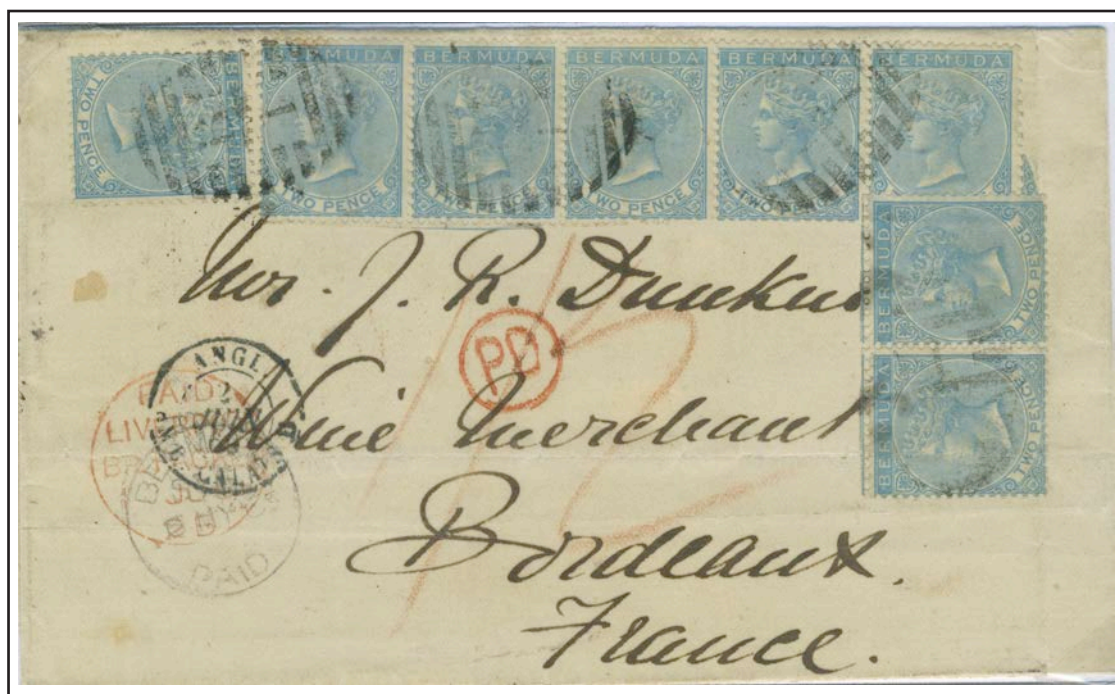 BERMUDA TWO PENCE
BERMUDA TWO PENCE
BERMUDA TWO PENCE
BERMUDA TWO PENCE
BERMUDA TWO PENCE
BERMUDA
BERMUDA TWO PENCE
BERMUDA TWO PENCE
Mr. J. R.
PD
Wine Merchant
Bordeaux.
France.
ANGL.
CALAIS
PAID
PAID